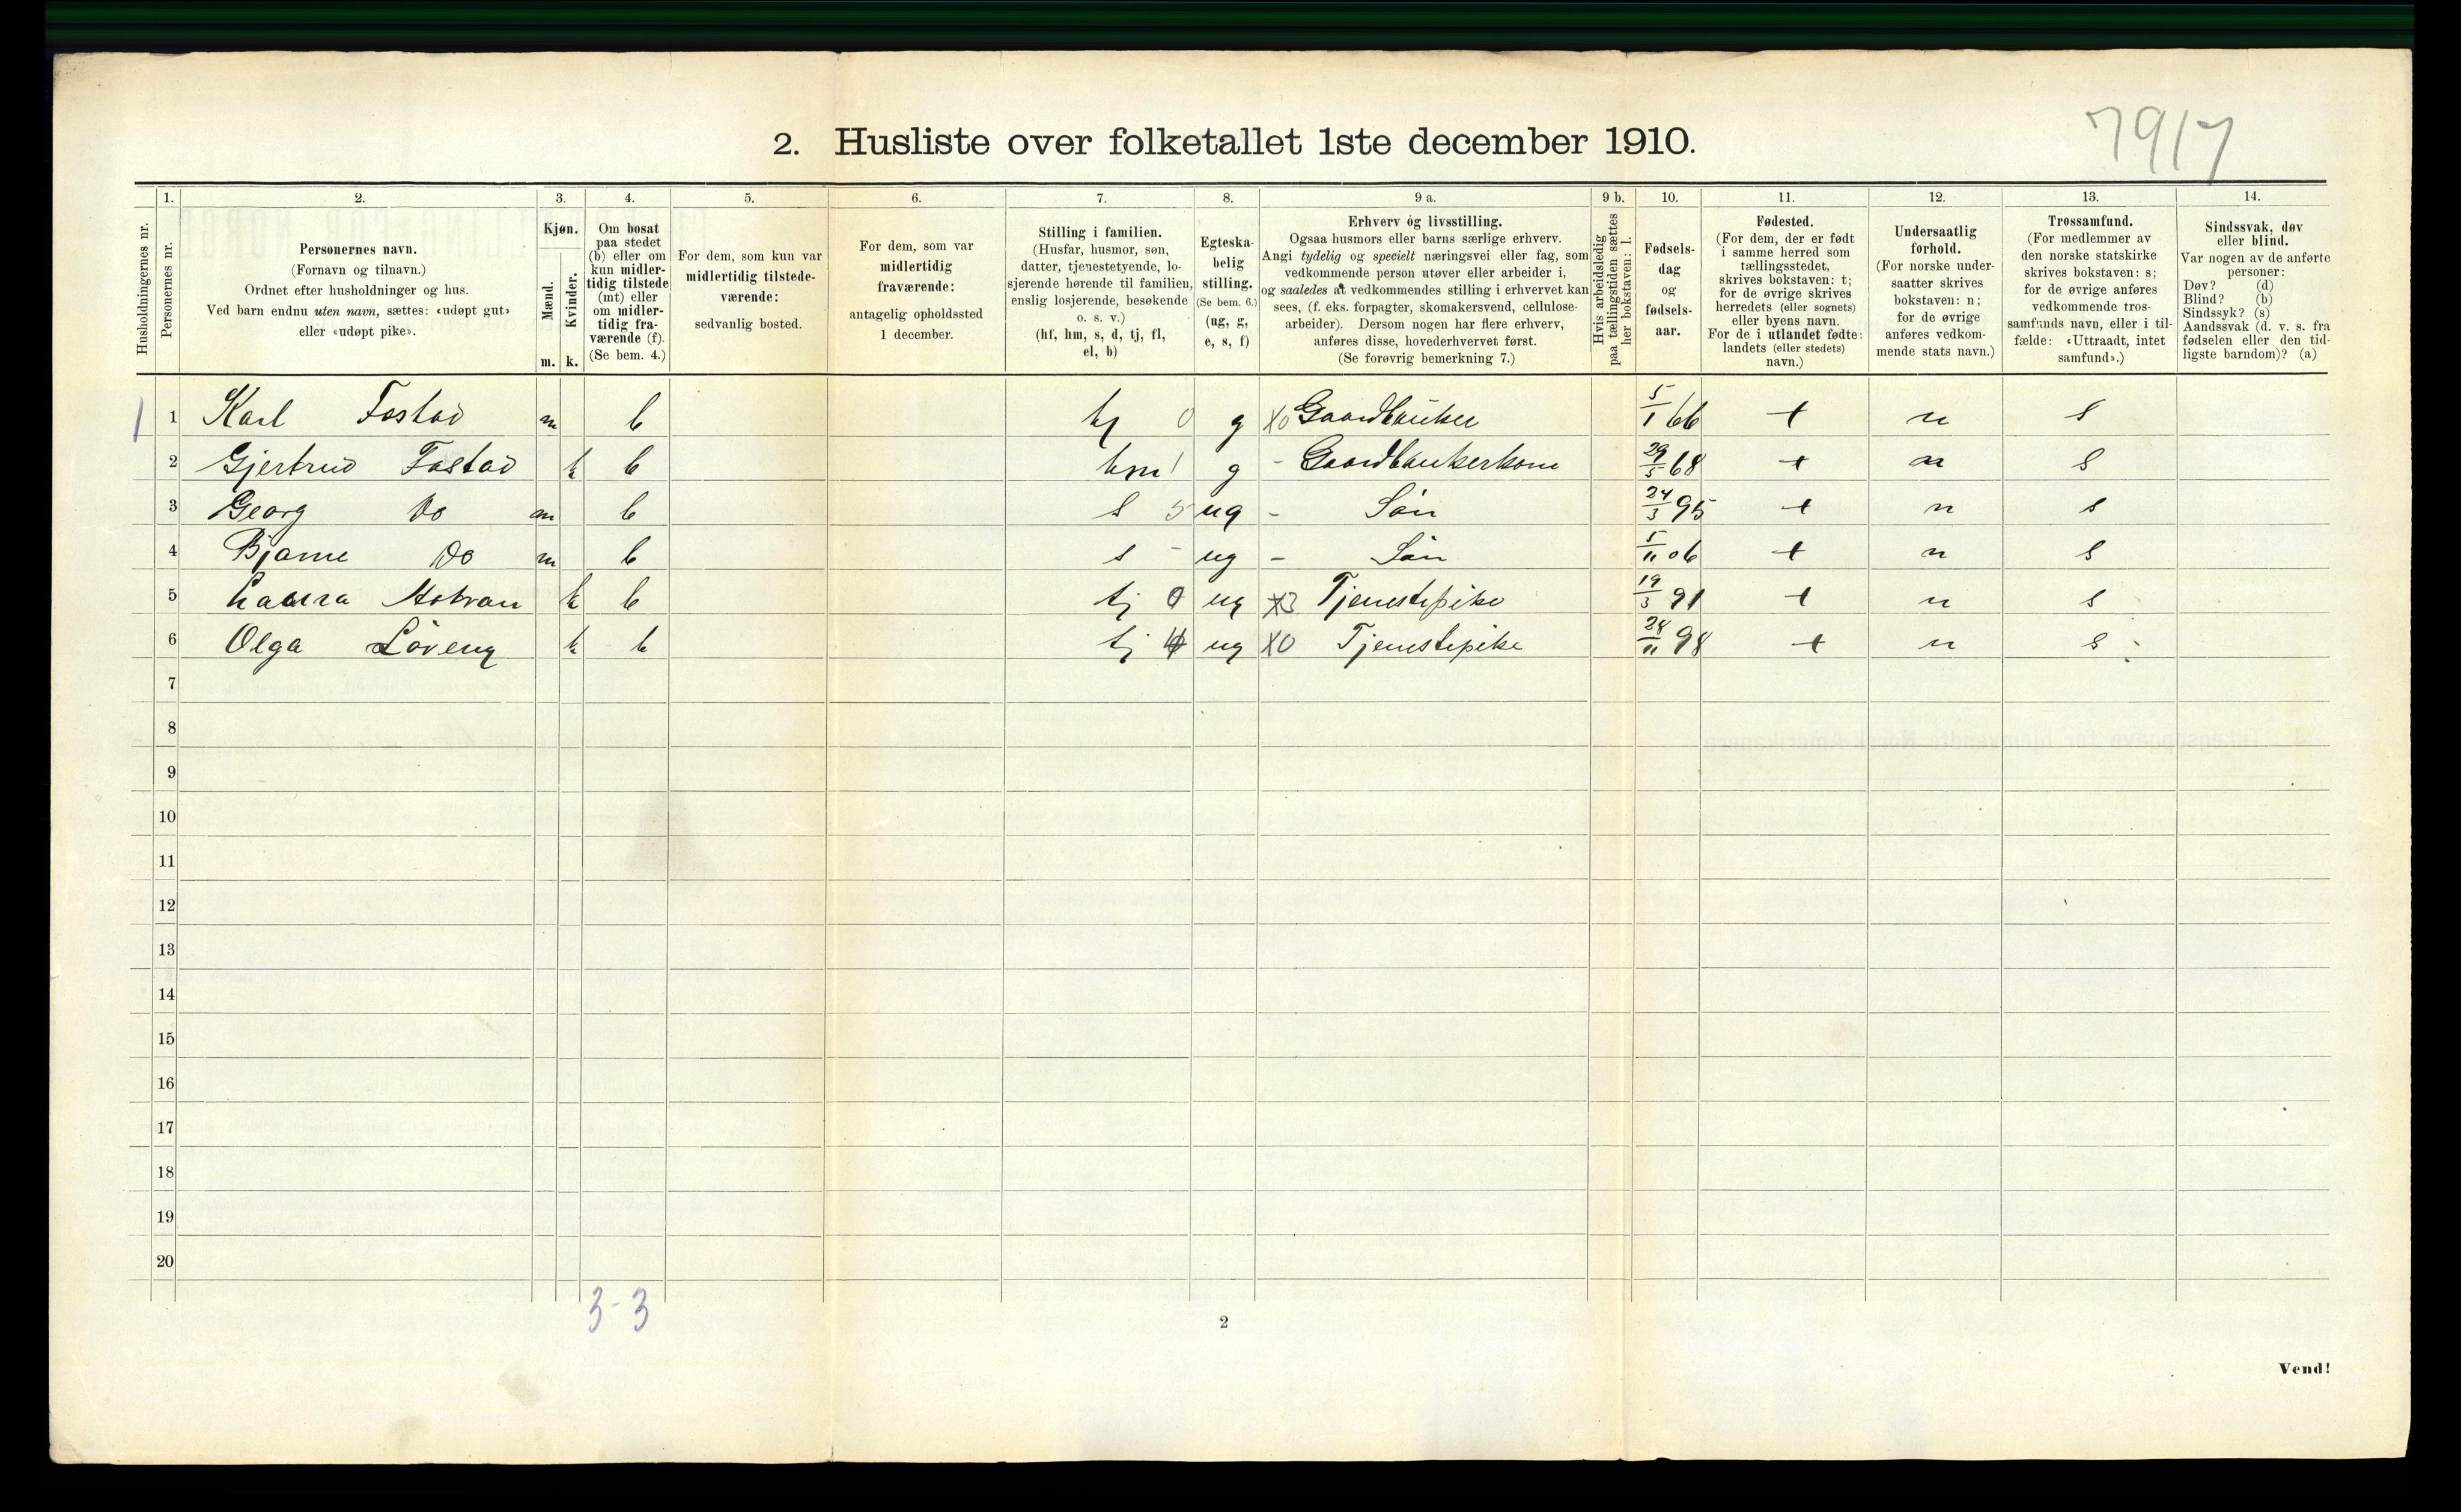 7917
2. Husliste over folketallet 1ste december 1910.
1. 2. 3. 4. 5. 6. 7. 8. 9 a. 9 b. 10. 11. 12. 13. 14.
Husholdningernes nr.
Personernes nr.
Personernes navn.
(Fornavn og tilnavn.)
Ordnet efter husholdninger og hus.
Ved barn endnu uten navn, sættes: «udøpt gut»
eller «udøpt pike».
Kjøn.
Mænd.
Kvinder.
m. k.
Om bosat
paa stedet
(b) eller om
kun midler-
tidig tilstede
(mt) eller
om midler-
tidig fra-
værende (f).
(Se bem. 4.)
For dem, som kun var
midlertidig tilstede-
værende:
sedvanlig bosted.
For dem, som var
midlertidig
fraværende:
antagelig opholdssted
1 december.
Stilling i familien.
(Husfar, husmor, søn,
datter, tjenestetyende, lo-
sjerende hørende til familien,
enslig losjerende, besøkende
o. s. v.)
(hf, hm, s, d, tj, fl,
el, b)
Egteska-
belig
stilling.
(Se bem. 6.)
(ug, g,
e, s, f)
Erhverv og livsstilling.
Ogsaa husmors eller barns særlige erhverv.
Angi tydelig og specielt næringsvei eller fag, som
vedkommende person utøver eller arbeider i,
og saaledes at vedkommendes stilling i erhvervet kan
sees, (f. eks. forpagter, skomakersvend, cellulose-
arbeider). Dersom nogen har flere erhverv,
anføres disse, hovederhvervet først.
(Se forøvrig bemerkning 7.)
Hvis arbeidsledig
paa tællingstiden sættes
her bokstaven: l.
Fødsels-
dag
og
fødsels-
aar.
Fødested.
(For dem, der er født
i samme herred som
tællingsstedet,
skrives bokstaven: t;
for de øvrige skrives
herredets (eller sognets)
eller byens navn.
For de i utlandet fødte:
landets (eller stedets)
navn.)
Undersaatlig
forhold.
(For norske under-
saatter skrives
bokstaven: n;
for de øvrige
anføres vedkom-
mende stats navn.)
Trossamfund.
(For medlemmer av
den norske statskirke
skrives bokstaven: s;
for de øvrige anføres
vedkommende tros-
samfunds navn, eller i til-
fælde: «Uttraadt, intet
samfund».)
Sindssvak, døv
eller blind.
Var nogen av de anførte
personer:
Døv? (d)
Blind? (b)
Sindssyk? (s)
Aandssvak (d. v. s. fra
fødselen eller den tid-
ligste barndom)? (a)
1 1 Karl Fostad m b hf 0 g X0 Gaardbruker 5/1 66 t n s
2 Gjertrud Fostad k b hm 1 g - Gaardbrukerkone 29/5 68 t n s
3 Georg Do m b s 5 ug - Søn 24/3 95 t n s
4 Bjarne Do m b s - ug - Søn 5/11 06 t n s
5 Laura k b tj 0 ug X3 Tjenestepike 19/3 91 t n s
6 Olga Löveng k b tj ug X0 Tjenestepike 24/11 98 t n s
7
8
9
10
11
12
13
14
15
16
17
18
19
20
3-3
2
Vend!